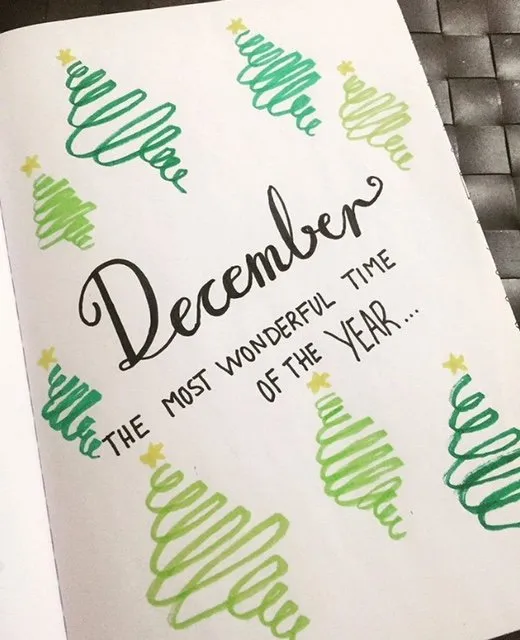 December
THE MOST WONDERFUL TIME
OF THE YEAR...